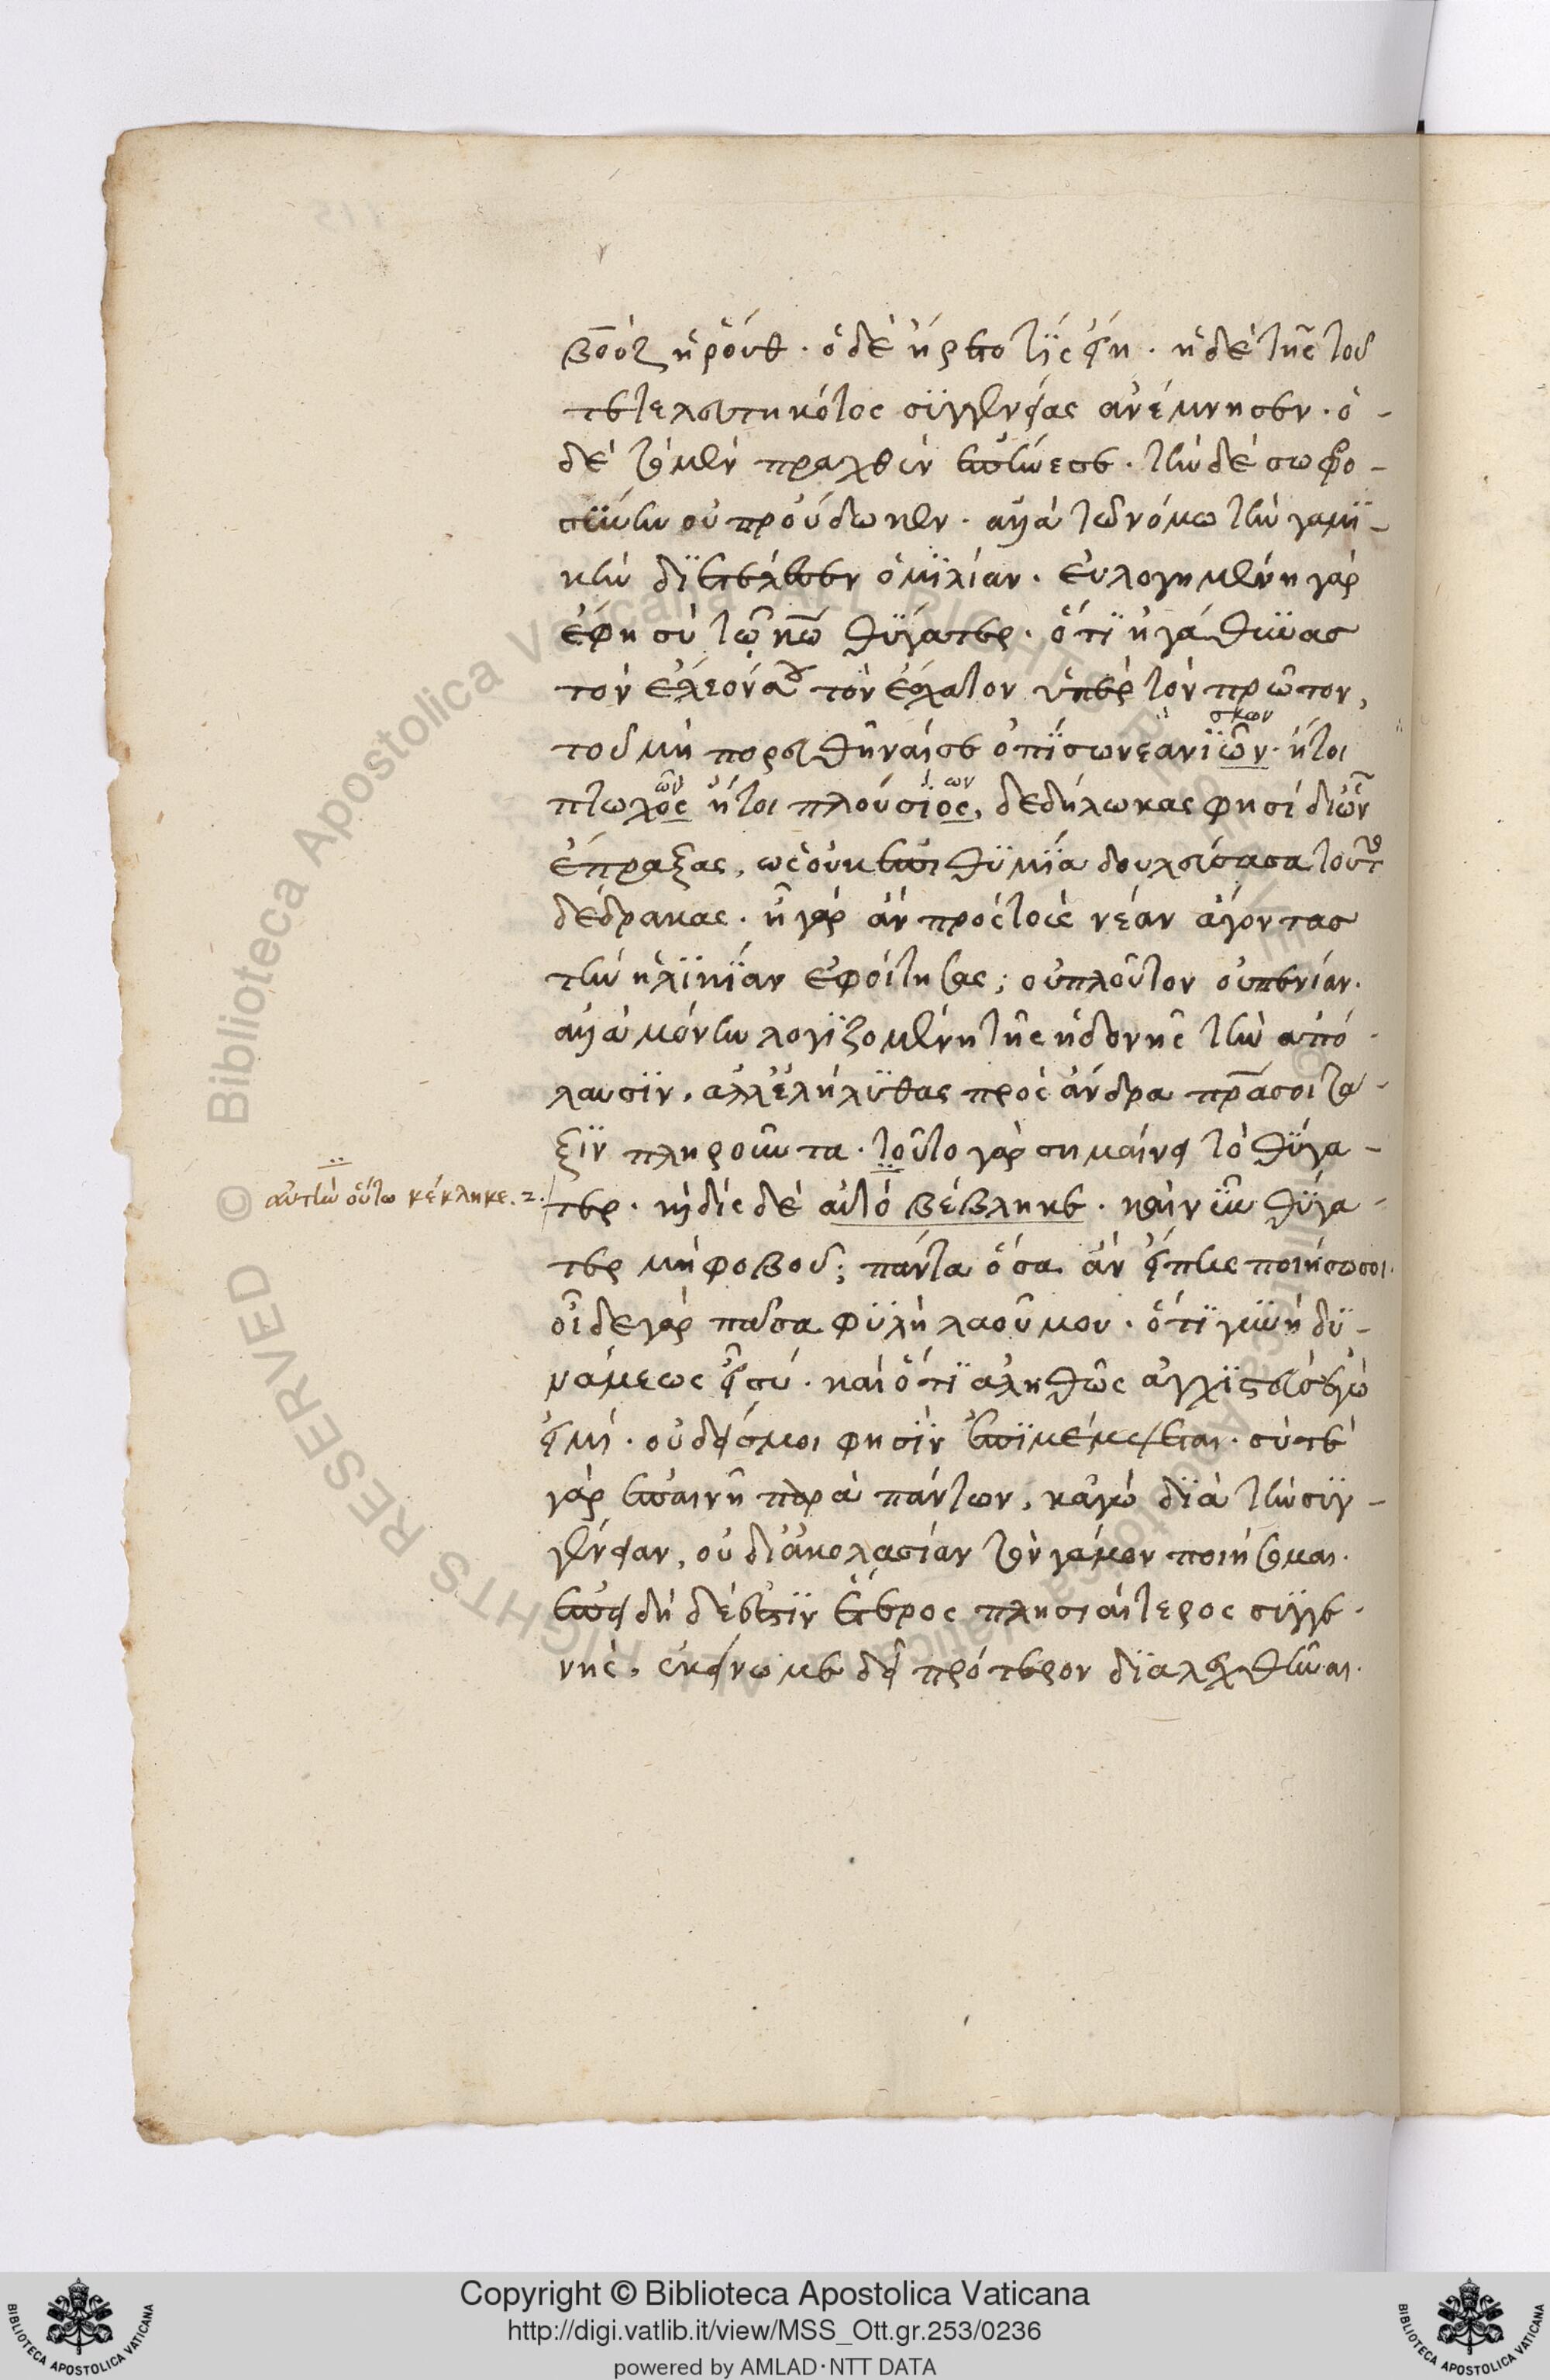 βοὸζ ἡ ῥούθ. ὁ δὲ ἤρετο τίς εἴη. ἡ δὲ τῆς τοῦ
τετελευτηκότος συγγενείας ἀνέμνησεν. ὁ -
δὲ τὸ μὲν πραχθὲν ἐπῄνεσε. τὴν δὲ σωφρο -
σύνην οὐ προύδωκεν. ἀλλὰ τῷ νόμῳ τὴν γαμι -
κὴν διετέλεσεν ὁμιλίαν. εὐλογημένη γάρ
ἔφη σὺ τῷ κῷ θύγατερ. ὅτι ἠγάθυνας
τὸν ἔλεόν σου τὸν ἔσχατον ὑπὲρ τὸν πρῶτον,
τοῦ μὴ πορευθῆναί σε ὀπίσω νεανιῶν. ἤτοι
σκων
πτωχὸς ἤτοι πλούσιος, δεδήλωκας φησὶ δι' ὧν
ῶν ίων
ἔπραξας, ὡς οὐκ ἐπιθυμία δουλεύσασα τοῦτο
δέδρακας. ἦ γὰρ ἂν πρὸς τοὺς νέαν ἄγοντας
τὴν ἡλικίαν ἐφοίτησας; οὐ πλοῦτον οὐ πενίαν.
ἀλλὰ μόνην λογιζομένη τῆς ἡδονῆς τὴν ἀπό -
λαυσιν. ἀλλ' ἐλήλυθας πρὸς ἄνδρα πρς σοι τά -
ξιν πληροῦντα. τοῦτο γὰρ σημαίνει τὸ θύγα -
τερ. καὶ δὶς δὲ αὐτὸ βέβληκε. καὶ νῦν θύγα -
αὐτὴν οὕτω κέκληκε. 2.
τερ μὴ φοβοῦ; πάντα ὅσα ἂν εἴπῃς ποιήσω σοι.
οἶδε γὰρ πᾶσα φυλὴ λαοῦ μου. ὅτι γυνὴ δυ -
νάμεως εἶ σύ. καὶ ὅτι ἀληθῶς ἀγχιστεύς ἐγώ
εἰμι. οὐδείς μοι φησὶν ἐπιμέμψεται. σύ τε
γὰρ ἐπαινῇ παρὰ πάντων, κἀγὼ διὰ τὴν συγ -
γένειαν, οὐ δι' ἀκολασίαν τὸν γάμον ποιήσομαι.
ἐπειδὴ δέ ἐστιν ἕτερος πλησιαίτερος συγγε -
νής, ἐκείνῳ με δεῖ πρότερον διαλεχθῆναι.